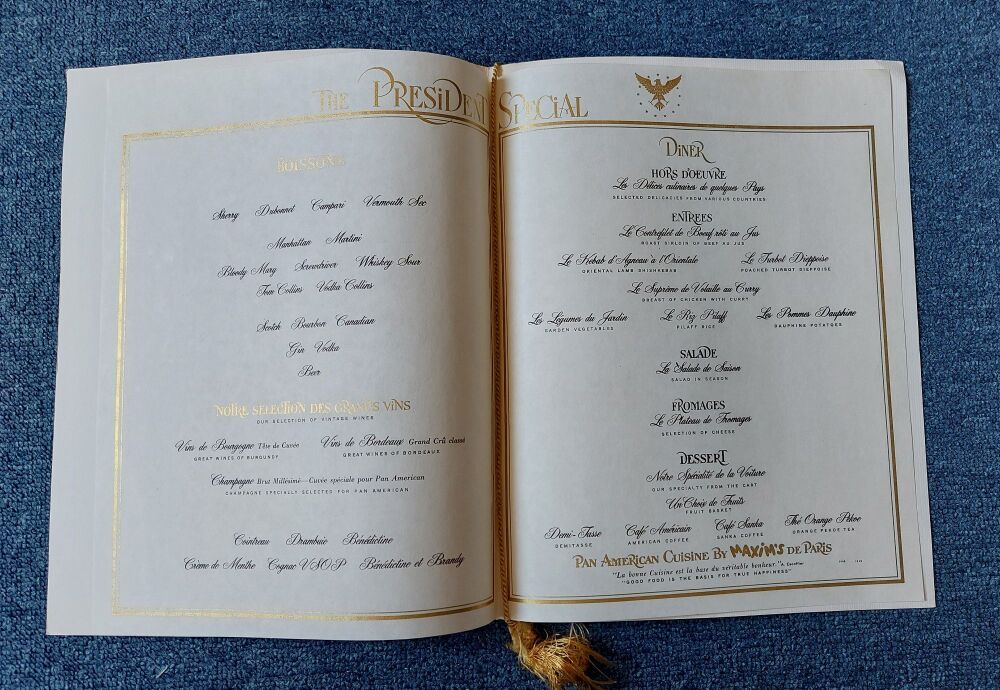 THE PRESIDENT SPECIAL
BOISSONS
Sherry Dubonnet Campari Vermouth Sec
Manhattan Martini
Bloody Mary Screwdriver Whiskey Sour
Tom Collins Vodka Collins
Scotch Bourbon Canadian
Gin Vodka
Beer
NOTRE SELECTION DES GRANDS VINS
OUR SELECTION OF VINTAGE WINES
Vins de Bourgogne Tête de Cuvée Vins de Bordeaux Grand Crû classé
GREAT WINES OF BURGUNDY GREAT WINES OF BORDEAUX
Champagne Brut Millésimé—Cuvée spéciale pour Pan American
CHAMPAGNE SPECIALLY SELECTED FOR PAN AMERICAN
Cointreau Drambuie Bénédictine
Crème de Menthe Cognac VSOP Bénédictine et Brandy
DINER
HORS D'OEUVRE
Les Délices culinaires de quelques Pays
SELECTED DELICACIES FROM VARIOUS COUNTRIES
ENTREES
Le Contrefilet de Boeuf rôti au Jus
ROAST SIRLOIN OF BEEF AU JUS
Le Kébab d'Agneau a l'Orientale Le Turbot Dieppoise
ORIENTAL LAMB SHISHKEBAB POACHED TURBOT DIEPPOISE
Le Suprème de Volaille au Curry
BREAST OF CHICKEN WITH CURRY
Les Légumes du Jardin Le Riz Pilaff Les Pommes Dauphine
GARDEN VEGETABLES PILAFF RICE DAUPHINE POTATOES
SALADE
La Salade de Saison
SALAD IN SEASON
FROMAGES
Le Plateau de Fromages
SELECTION OF CHEESE
DESSERT
Notre Spécialité de la Voiture
OUR SPECIALTY FROM THE CART
Un Choix de Fruits
FRUIT BASKET
Demi-Tasse Café Américain Café Sanka Thé Orange Pekoe
DEMITASSE AMERICAN COFFEE SANKA COFFEE ORANGE PEKOE TEA
PAN AMERICAN CUISINE BY MAXIM'S DE PARIS
"La bonne Cuisine est la base du véritable bonheur." A. Escoffier
"GOOD FOOD IS THE BASIS FOR TRUE HAPPINESS"